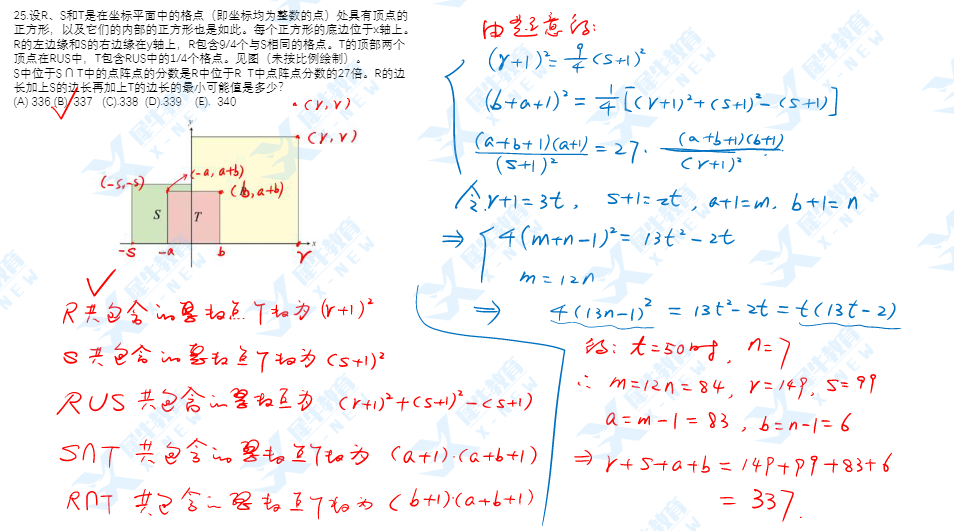 25.设R、S和T是在坐标平面中的格点（即坐标均为整数的点）处具有顶点的
正方形，以及它们的内部的正方形也是如此。每个正方形的底边位于x轴上。
R的左边缘和S的右边缘在y轴上，R包含9/4个与S相同的格点。T的顶部两个
顶点在RUS中，T包含RUS中的1/4个格点。见图（未按比例绘制）。
S中位于S∩T中的点阵点的分数是R中位于R T中点阵点分数的27倍。R的边
长加上S的边长再加上T的边长的最小可能值是多少?
(A) 336 (B) 337 (C).338 (D).339 (E). 340
(r, r)
y
(r, r)
(-s,-s)
(-a, a+b)
(b, a+b)
S
T
x
-s
-a
b
r
R 共包含的整数点个数为 (r+1)²
S 共包含的整数点个数为 (s+1)²
RUS 共包含的整数点为 (r+1)²+(s+1)²-(s+1)
S∩T 共包含的整数点个数为 (a+1)·(a+b+1)
R∩T 共包含的整数点个数为 (b+1)(a+b+1)
由题意得:
(r+1)²=9/4(s+1)²
(b+a+1)²=1/4[(r+1)²+(s+1)²-(s+1)]
(a+b+1)(a+1)/(s+1)²=27·(a+b+1)(b+1)/(r+1)²
令r+1=3t, s+1=2t, a+1=m, b+1=n
⇒ 4(m+n-1)²=13t²-2t
m=12n
⇒ 4(13n-1)²=13t²-2t=t(13t-2)
得: t=50时, n=7
∴ m=12n=84, r=149, s=99
a=m-1=83, b=n-1=6
⇒ r+s+a+b=149+99+83+6
=337.
犀牛教育
X-NEW